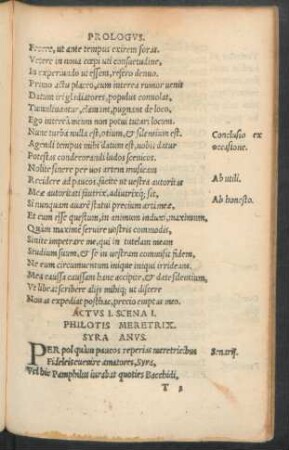 PROLOGVS.
Facere, ut ante tempus exirem foras.
Vetere in noua cœpi uti consuetudine,
In experiundo ut essem, refero denuo.
Primo actu placeo, cum interea rumor uenit
Datum iri gladiatores, populus conuolat,
Tumultuantur, clamant, pugnant de loco,
Ego interea meum non potui tutari locum.
Nunc turba nulla est, otium, & silentium est.
Conclusio ex
Agendi tempus mihi datum est, uobis datur
occasione.
Potestas condecorandi ludos scenicos.
Nolite sinere per uos artem musicam
Recidere ad paucos, facite ut uestra autoritas
Ab utili.
Meæ autoritati fautrix, adiutrixq; sit,
Si nunquam auare statui precium arti meæ,
Ab honesto.
Et eum esse quæstum, in animum induxi, maximum,
Quàm maxime seruire uestris commodis,
Sinite impetrare me, qui in tutelam meam
Studium suum, & se in uestram commisit fidem,
Ne eum circumuentum inique iniqui irrideant.
Mea causa causam hanc accipite, & date silentium,
Vt libeat scribere alijs mihiq; ut discere
Nouas expediat posthac, precio emptas meo.
ACTVS I. SCENA I.
PHILOTIS MERETRIX.
SYRA ANVS.
PER pol quàm paucos reperias meretricibus
Senarij.
Fideleis euenire amatores, Syra,
Vel hic Pamphilus iurabat quoties Bacchidi,
T 2